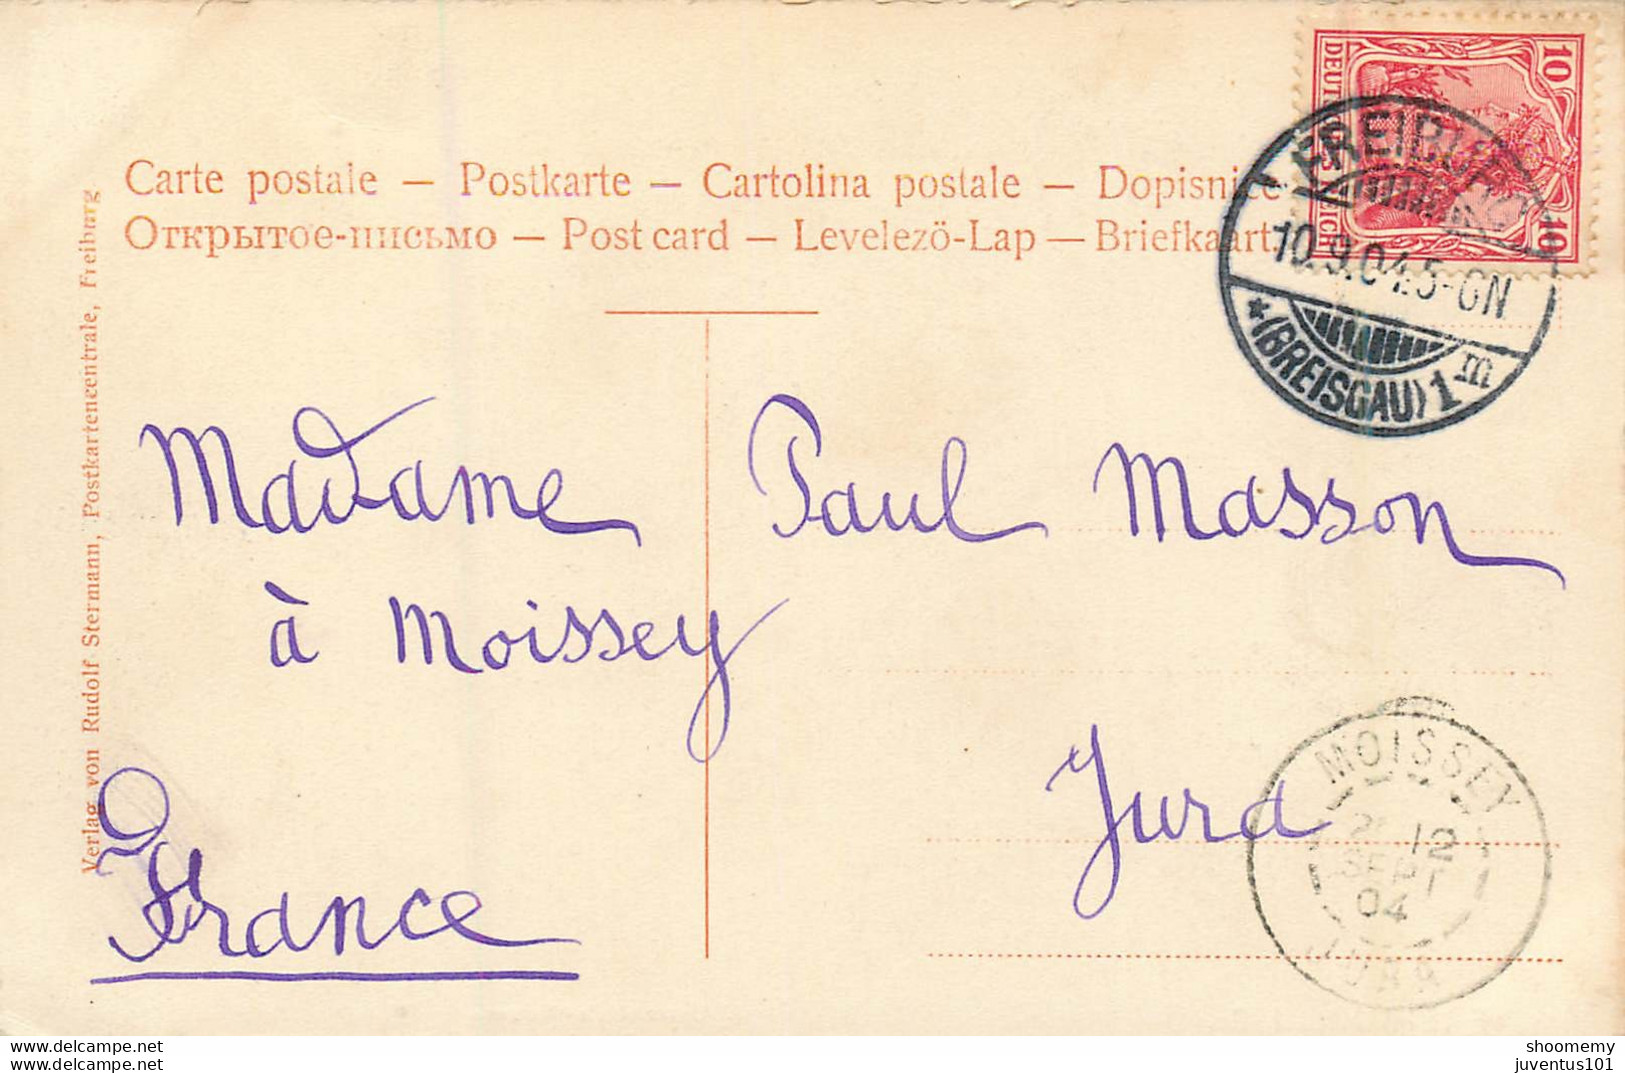 Carte postale – Postkarte – Cartolina postale – Dopisnice
Открытое-письмо – Post card – Levelezö-Lap – Briefkaart
Verlag von Rudolf Stermann, Postkartencentrale, Freiburg
10 10
DEUTSCHES REICH
FREIBURG
10.9.04.5-6N
*(BREISGAU) 1 m
Madame Paul Masson
à Moissey
Jura
France
MOISSEY
12
SEPT
04
JURA
www.delcampe.net
www.postkarten.com
shoomemy
juventus101